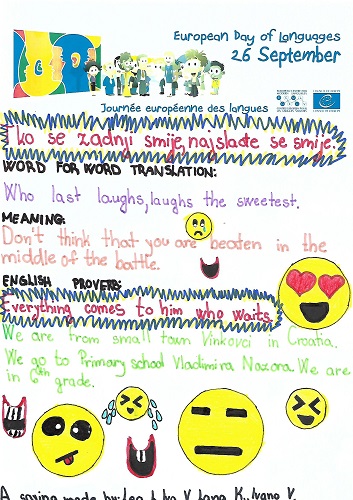 European Day of Languages
26 September
Journée européenne des langues
Tko se zadnji smije, najslađe se smije.
WORD FOR WORD TRANSLATION:
Who last laughs, laughs the sweetest.
MEANING:
Don't think that you are beaten in the
middle of the battle.
ENGLISH PROVERB:
Everything comes to him who waits.
We are from small town Vinkovci in Croatia.
We go to Primary school Vladimira Nazora. We are
in 6th grade.
A saying made by: V., K., Ivano V.